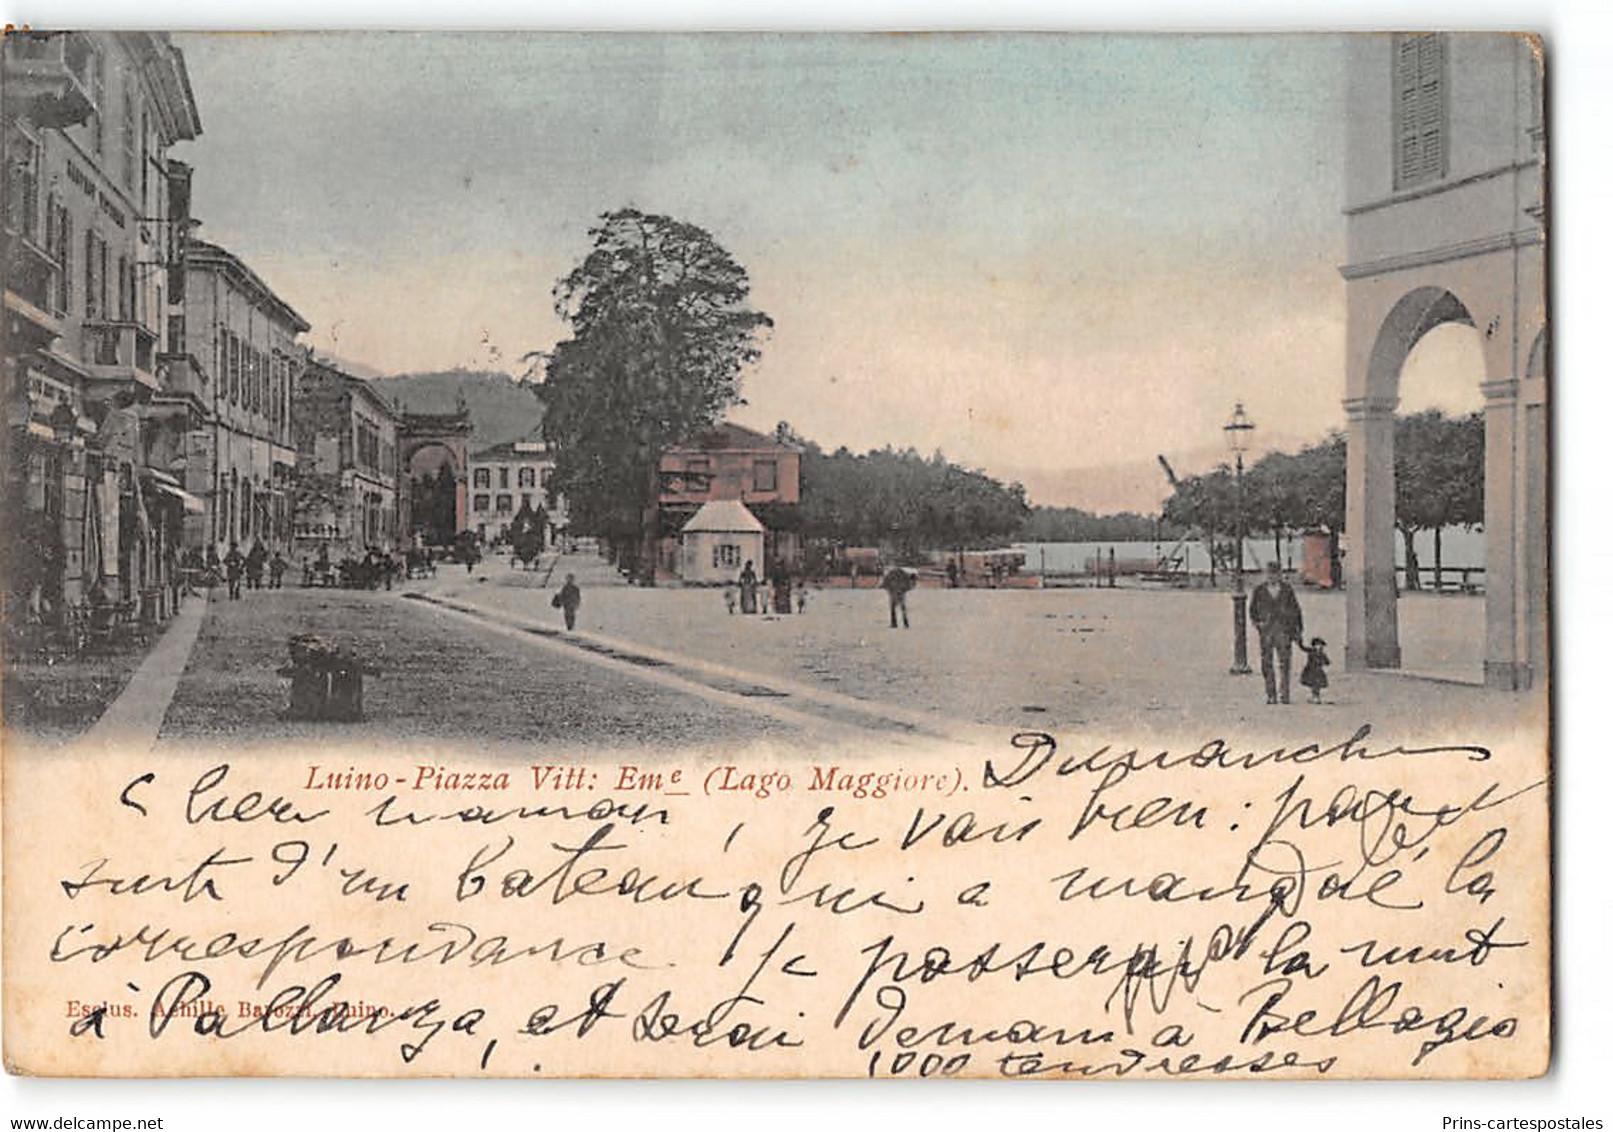 Luino - Piazza Vitt: Eme (Lago Maggiore).
Dimanche
Cher maman, je vais bien: par
suite d'un bateau qui a manqué la
correspondance. Je passerai la nuit
à Pallanza, et serai demain à Bellagio
1000 tendresses
Esclus. Achille Barozzi, Luino.
www.delcampe.net
Prins-cartespostales